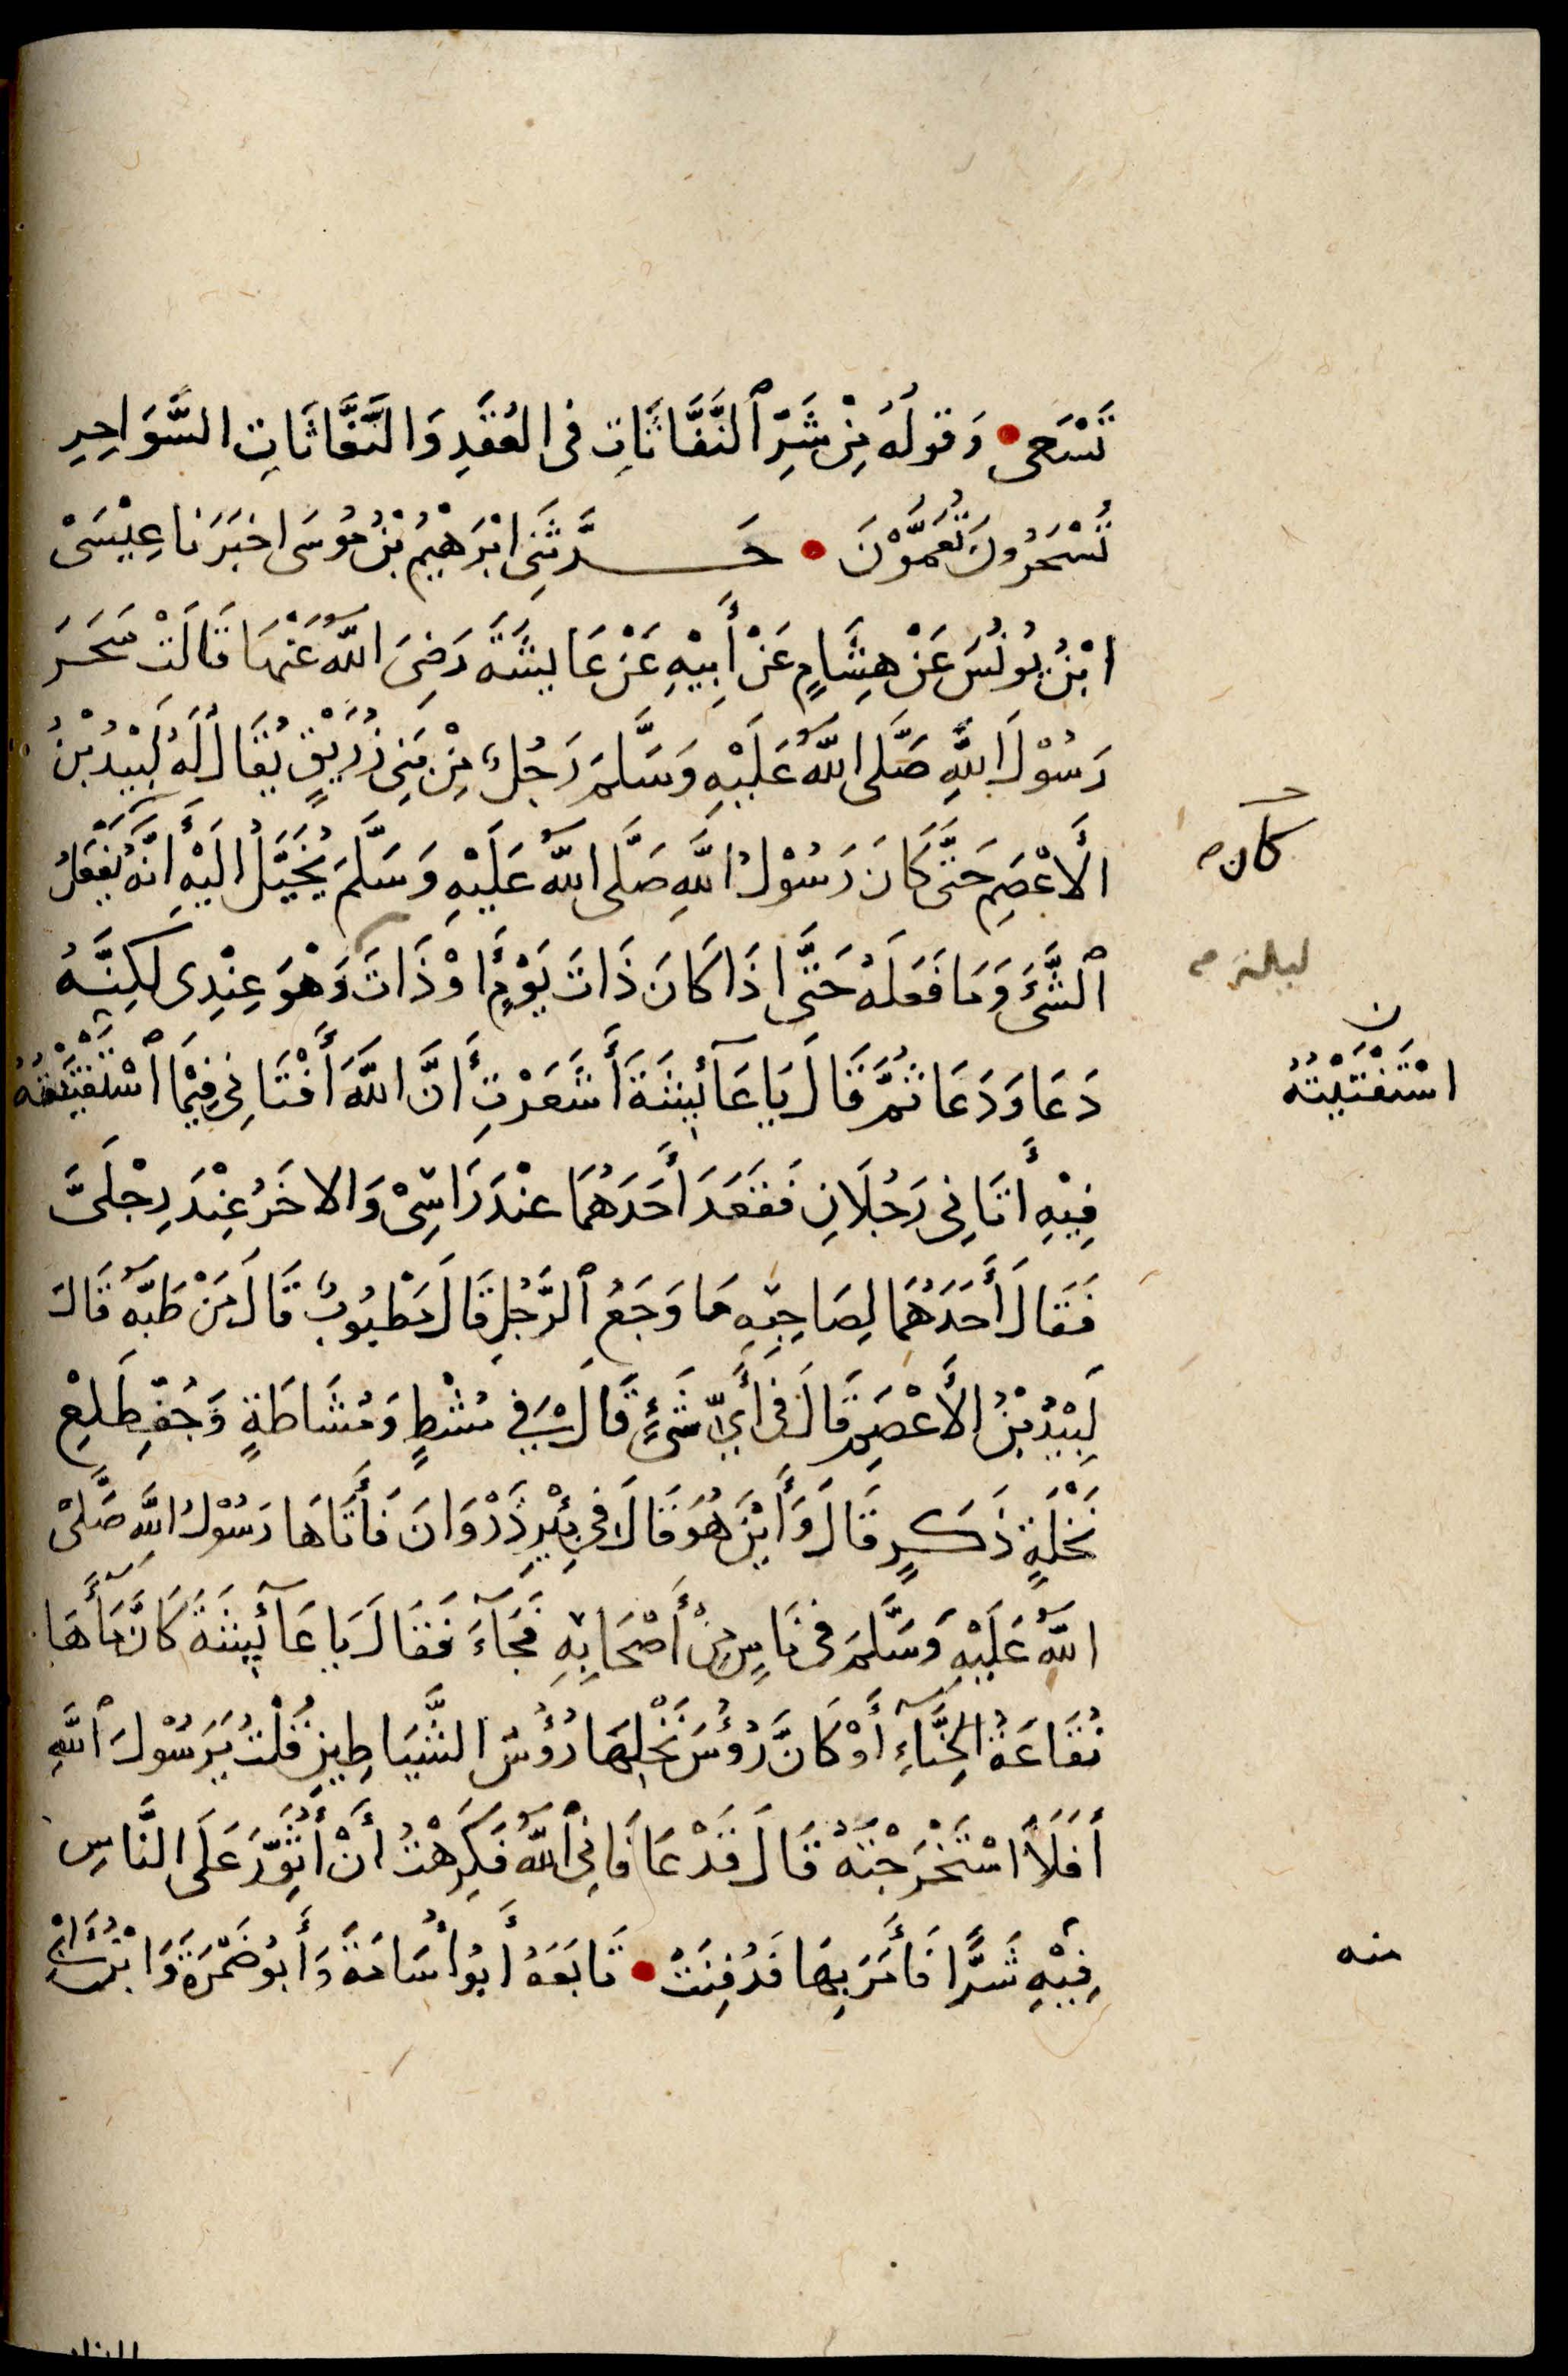 تَسْعَى وَقولُهُ مِنْ شَرِّ ٱلنَّفَّاثَاتِ فى العُقَدِ وَالنَّفَّاثَاتِ السَّوَاحِرِ
تُسْحَرُونَ تُعَمَّوْنَ حَدَّثَنِى ابْرَهِيْمُ بْنُ مُوسَى اخبَرَنا عِيْسَىْ
ابْنُ يُونُسَ عَنْ هِشَامٍ عَنْ أَبِيْهِ عَنْ عَايِشَةَ رَضِىَ اللَّهُ عَنْهَا قَالَتْ سَحَرَ
رَسُوْلَ اللَّهِ صَلَّى اللَّهُ عَلَيْهِ وَسَلَّمَ رَجُلٌ مِنْ بَنِى زُرَيْقٍ يُقَالُ لَهُ لَبِيْدُ بْنُ
الأَعْصَمِ حَتَّى كَانَ رَسُوْلُ اللَّهِ صَلَّى اللَّهُ عَلَيْهِ وَسَلَّمَ يُخَيَّلُ الَيْهِ أَنَّهُ يَفْعَلُ
كان
ٱلشَّىْءَ وَمَا فَعَلَهُ حَتَّى اذَا كَانَ ذَاتَ يَوْمٍ أَوْ ذَاتَ وَهْوَ عِنْدِى لكِنَّهُ
ليلة
دَعَا وَدَعَا ثُمَّ قَالَ يَا عَآئِشَةُ أَشَعَرْتِ أَنَّ اللَّهَ أَفْتَانِى فِيْمَا ٱسْتَفْتَيْتُهُ
ن
اسْتَفْتَيْتُهُ
فِيْهِ أَتَانِى رَجُلَانِ فَقَعَدَ أَحَدُهُمَا عنْدَ رَاسِىْ وَالاخَرُ عِنْدَ رِجْلَىَّ
فَقَالَ أَحَدُهُمَا لِصَاحِبِهِ مَا وَجَعُ ٱلرَّجُلِ قَالَ مَطْبُوبٌ قَالَ مَنْ طَبَّهُ قَالَ
لَبِيْدُ بْنُ الأَعْصَمِ قَالَ فى أَىِّ شَىْءٍ قَالَ فِي مُشْطٍ وَمُشَاطَةٍ وَجُفِّ طَلعِ
نَخْلَةٍ ذَكَرٍ قَالَ وَأَيْنَ هُوَ قَالَ فى بِئْرِ ذَرْوَانَ فَأَتَاهَا رَسُوْلُ اللَّهِ صَلَّىْ
اللَّهُ عَلَيْهِ وَسَلَّمَ فى نَاسٍ مِنْ أَصْحَابِهِ فَجَآءَ فَقَالَ يَا عَآئِشَةُ كَانَّ مَآءَهَا
نُقَاعَةُ الحِنَّآءِ أَوْ كَانَّ رُؤُسَ نَخْلِهَا رُؤُسُ الشَّيَاطِيْنِ قُلْتُ يَرَسُوْلَ ٱللَّهِ
أَفَلَا اسْتَخْرَجْتَهُ قَالَ قَدْ عَافَانِى ٱللَّهُ فَكَرِهْتُ أَنْ أُثَوِّرَ عَلَى النَّاسِ
فِيْهِ شَرًّا فَأَمَرَ بِهَا فَدُفِنَتْ تَابَعَهُ أَبُو أُسَامَةَ وَأَبُو ضَمْرَةَ وَابْنُ
منه